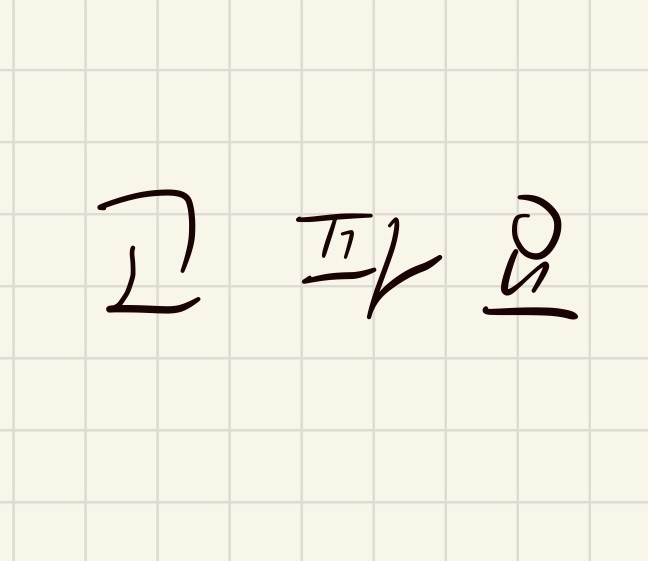 고 파 요